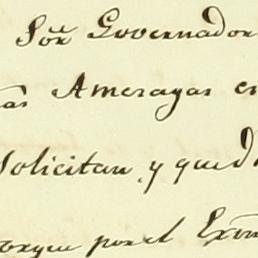 Sõr Governador
as Amesagas en
Solicitan, y qued
porque por el Exmo